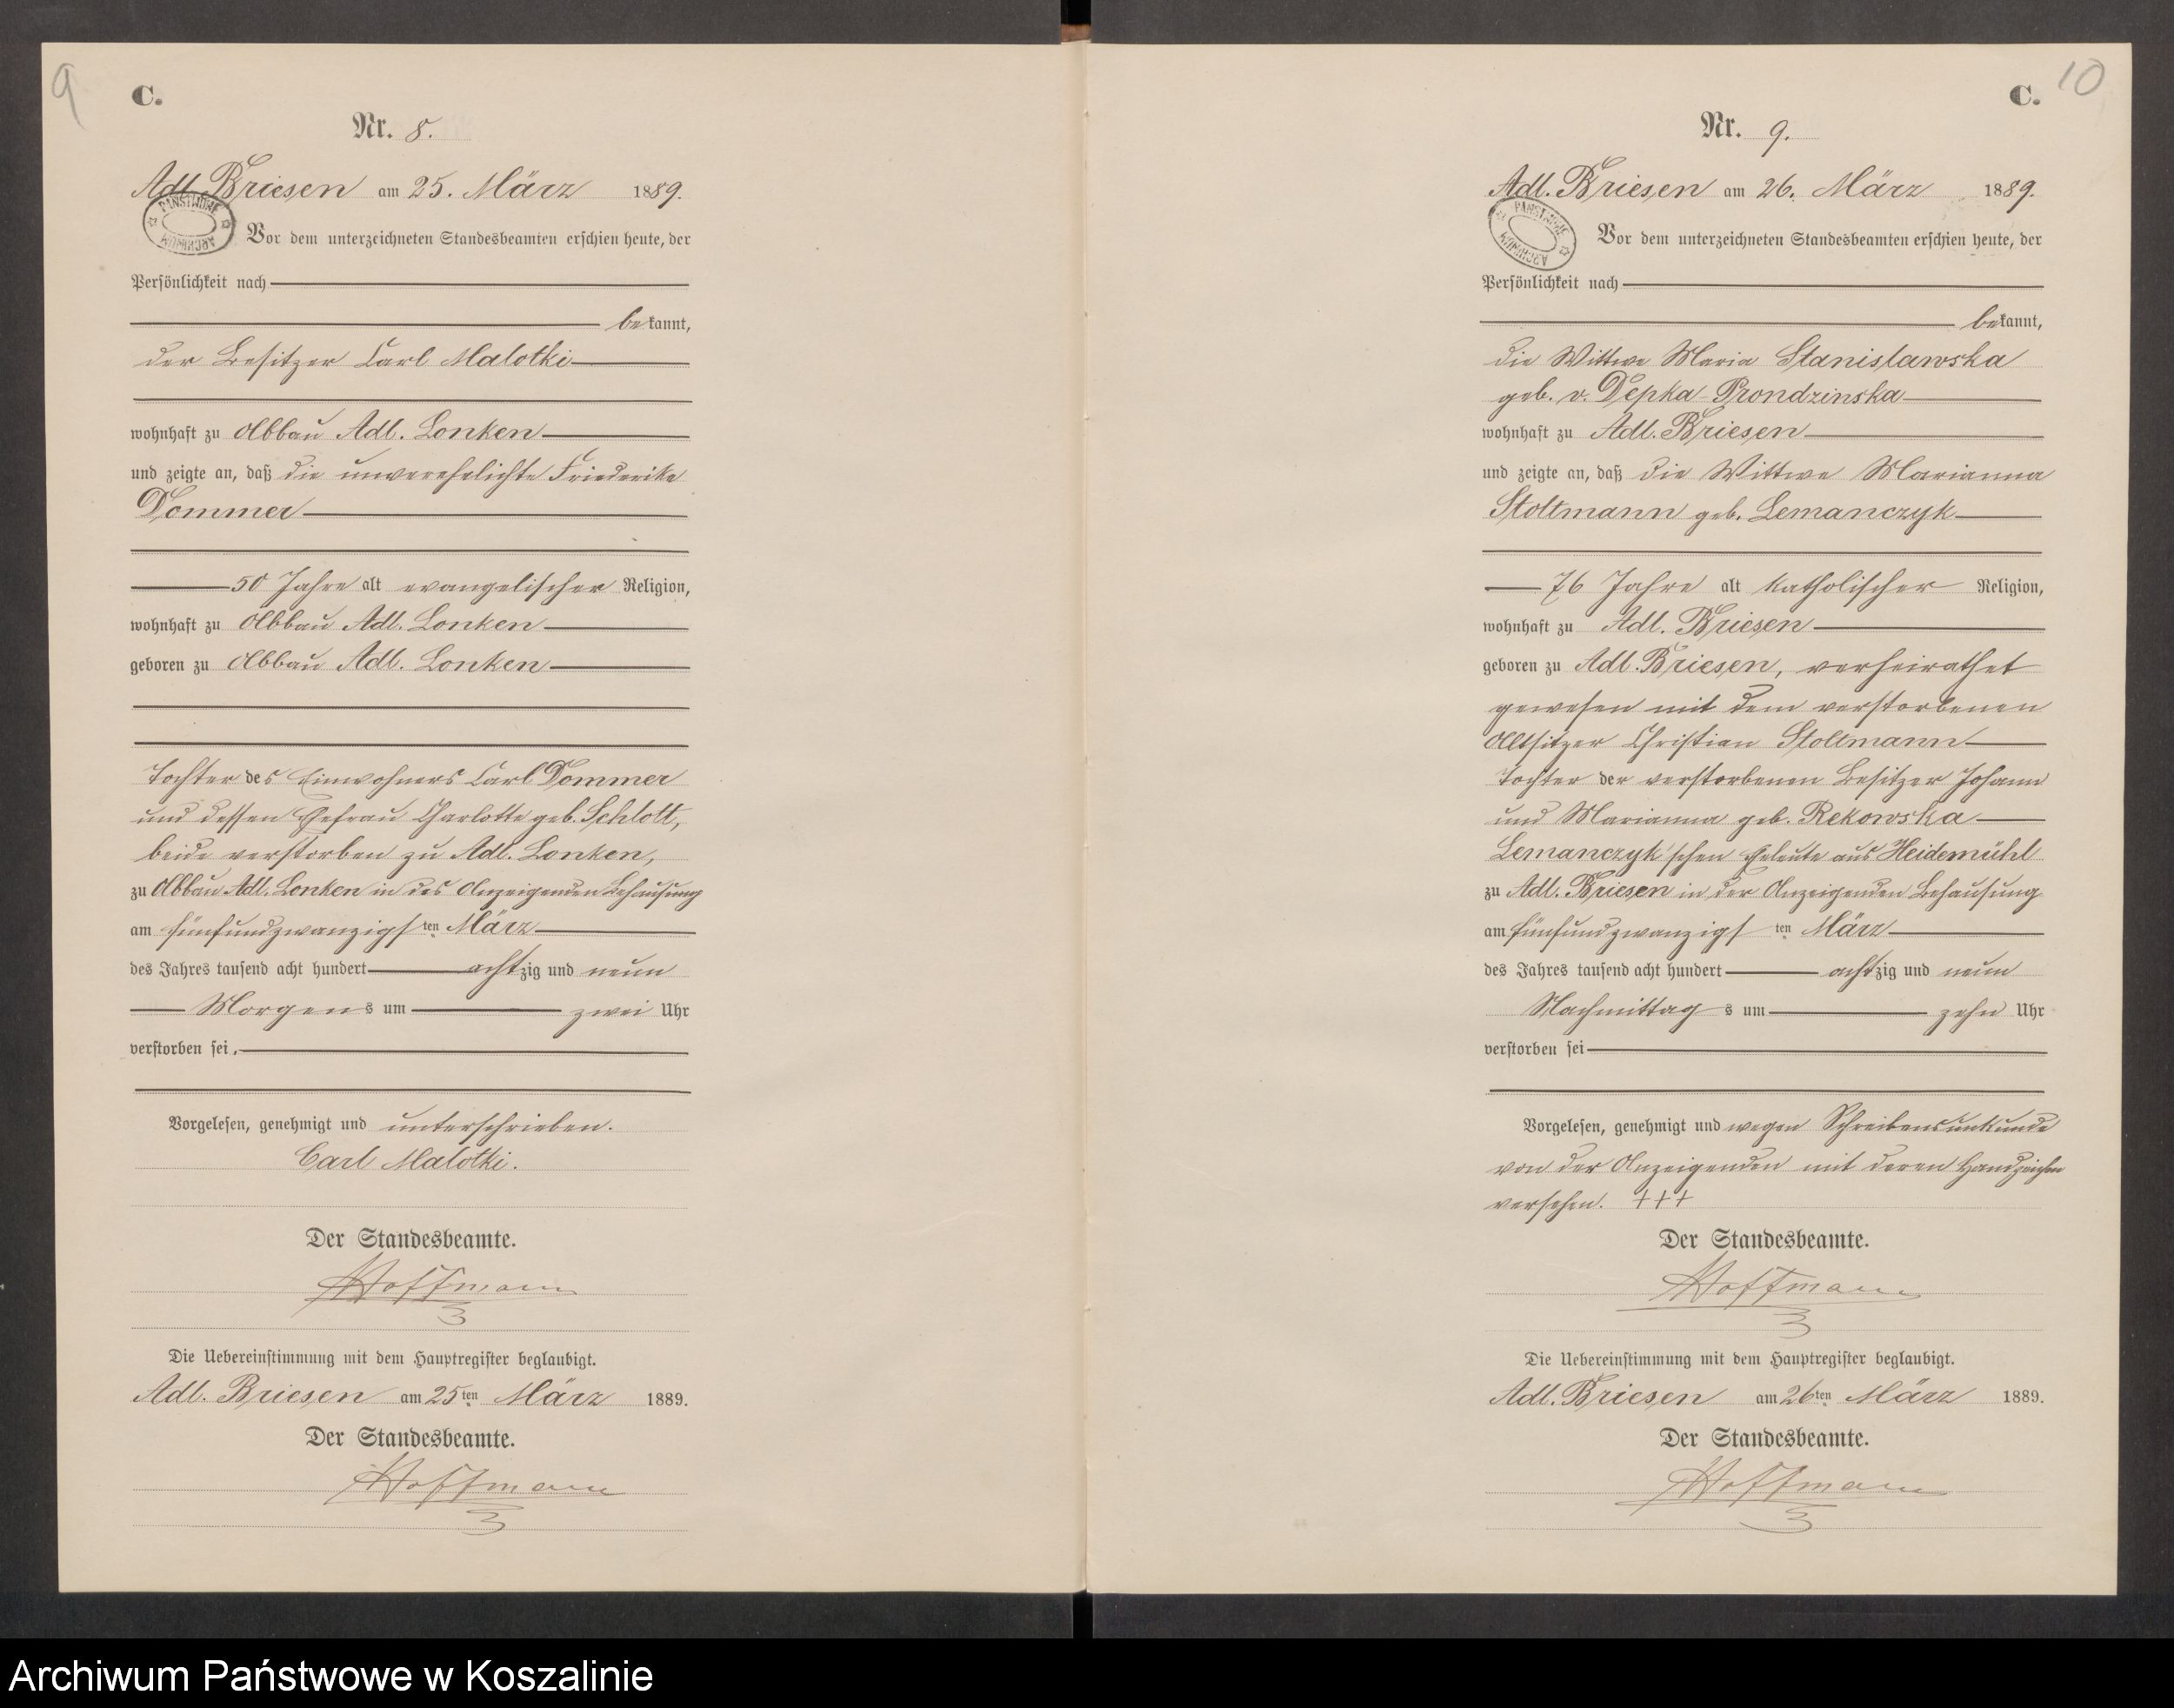 9
C.
Nr. 8.
Adl. Briesen am 25. März 1889.
PAŃSTWOWE ARCHIWUM
Vor dem unterzeichneten Standesbeamten erschien heute, der
Persönlichkeit nach
bekannt,
der Besitzer Carl Malotki
wohnhaft zu Abbau Adl. Lonken
und zeigte an, daß die unverehelichte Friederike
Dommer
50 Jahre alt evangelischer Religion,
wohnhaft zu Abbau Adl. Lonken
geboren zu Abbau Adl. Lonken
Tochter des Einwohners Carl Dommer
und dessen Ehefrau Charlotte geb. Schlott,
beide verstorben zu Adl. Lonken,
zu Abbau Adl. Lonken in des Anzeigenden Behausung
am fünfundzwanzigsten März
des Jahres tausend acht hundert achtzig und neun
Morgens um zwei Uhr
verstorben sei.
Vorgelesen, genehmigt und unterschrieben.
Carl Malotki.
Der Standesbeamte.
Hoffmann
Die Uebereinstimmung mit dem Hauptregister beglaubigt.
Adl. Briesen am 25ten März 1889.
Der Standesbeamte.
Hoffmann
10
C.
Nr. 9.
Adl. Briesen am 26. März 1889.
PAŃSTWOWE ARCHIWUM
Vor dem unterzeichneten Standesbeamten erschien heute, der
Persönlichkeit nach
bekannt,
die Wittwe Maria Stanislawska
geb. v. Depka-Prondzinska
wohnhaft zu Adl. Briesen
und zeigte an, daß die Wittwe Marianna
Stoltmann geb. Lemanczyk
76 Jahre alt katholischer Religion,
wohnhaft zu Adl. Briesen
geboren zu Adl. Briesen, verheirathet
gewesen mit dem verstorbenen
Altsitzer Christian Stoltmann
Tochter der verstorbenen Besitzer Johann
und Marianna geb. Rekowska
Lemanczyk'schen Eheleute aus Heidemühl
zu Adl. Briesen in der Anzeigenden Behausung
am fünfundzwanzigsten März
des Jahres tausend acht hundert achtzig und neun
Nachmittags um zehn Uhr
verstorben sei
Vorgelesen, genehmigt und wegen Schreibensunkunde
von der Anzeigenden mit deren Handzeichen
versehen. +++
Der Standesbeamte.
Hoffmann
Die Uebereinstimmung mit dem Hauptregister beglaubigt.
Adl. Briesen am 26ten März 1889.
Der Standesbeamte.
Hoffmann
Archiwum Państwowe w Koszalinie